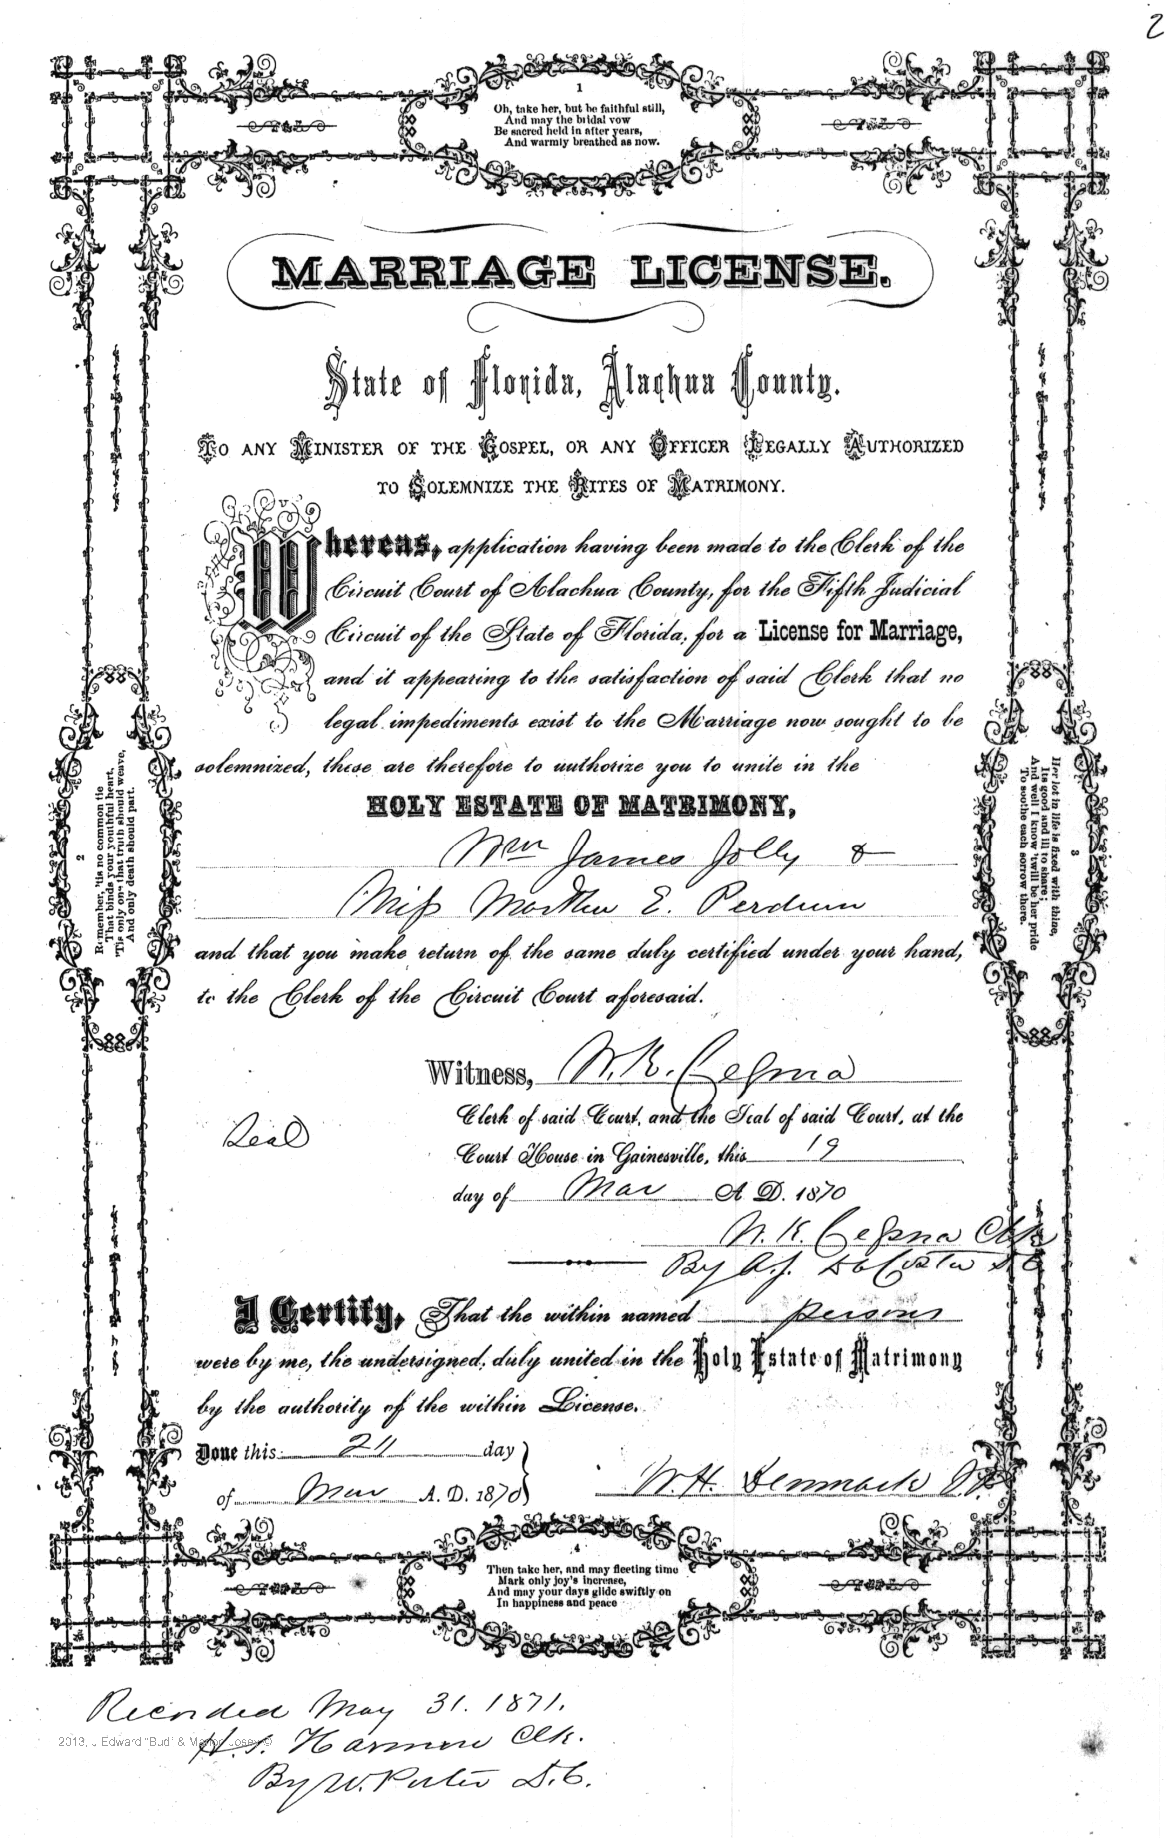 2
1
Oh, take her, but be faithful still,
And may the bridal vow
Be sacred held in after years,
And warmly breathed as now.
MARRIAGE LICENSE.
State of Florida, Alachua County.
TO ANY MINISTER OF THE GOSPEL, OR ANY OFFICER LEGALLY AUTHORIZED
TO SOLEMNIZE THE RITES OF MATRIMONY.
Whereas, application having been made to the Clerk of the
Circuit Court of Alachua County, for the Fifth Judicial
Circuit of the State of Florida, for a License for Marriage,
and it appearing to the satisfaction of said Clerk that no
legal impediments exist to the Marriage now sought to be
solemnized, these are therefore to authorize you to unite in the
HOLY ESTATE OF MATRIMONY,
Wm James Jolly &
Miss Martha E.
and that you make return of the same duly certified under your hand,
to the Clerk of the Circuit Court aforesaid.
2
Remember, 'tis no common tie
That binds your youthful heart,
'Tis only one that truth should weave,
And only death should part.
3
Her lot in life is fixed with thine,
Its good and ill to share;
And well I know 'twill be her pride
To soothe each sorrow there.
Witness, Cessna
Clerk of said Court, and the Seal of said Court, at the
Seal
Court House in Gainesville, this 19
day of Mar A. D. 1870
Cessna Clk
By
I Certify, That the within named persons
were by me, the undersigned, duly united in the Holy Estate of Matrimony
by the authority of the within License.
Done this 24 day
of Mar A. D. 1870
4
Then take her, and may fleeting time
Mark only joy's increase,
And may your days glide swiftly on
In happiness and peace
Recorded May 31. 1871.
H. S. Harmon Clk.
By W. Porter D.C.
2013, J. Edward "Bud" & Marion Josey ©